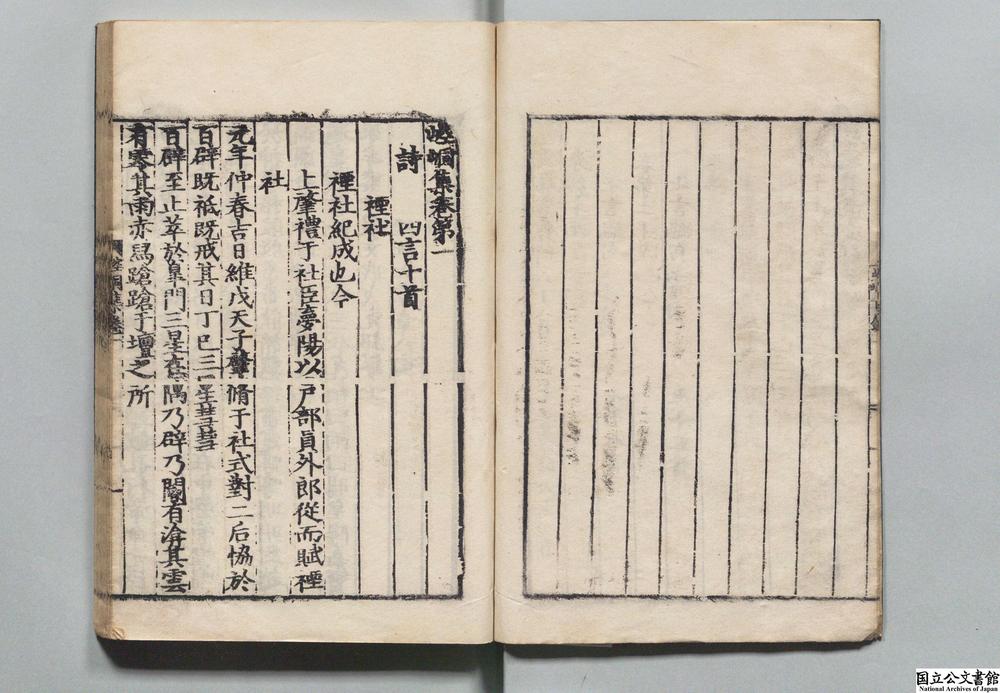 崆峒集卷第一
詩　四言十首
禋社
禋社紀成也今
上肇禮于社臣夢陽以戶部員外郎從而賦禋
社
元年仲春吉日維戊天子肇脩于社式對二后恊於
百辟既祗既戒其日丁巳三星彗彗
百辟至止萃於臯門三星在隅乃辟乃闥有渰其雲
有零其雨赤舄蹌蹌于壇之所
国立公文書館
National Archives of Japan